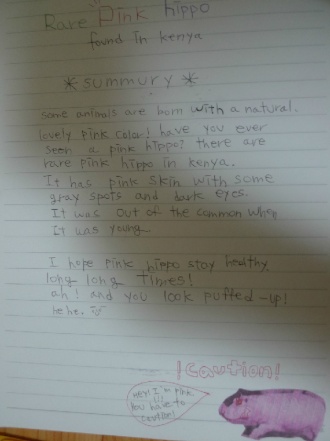 Rare Pink hippo
found in kenya
* summury *
some animals are born with a natural.
lovely pink color! have you ever
seen a pink hippo? there are
rare pink hippo in kenya.
It has pink skin with some
gray spots and dark eyes.
It was out of the common when
It was young
I hope pink hippo stay healthy.
long long times!
ah! and you look puffed-up!
hehe.
! caution!
hey! I'm pink
You have to
caution!